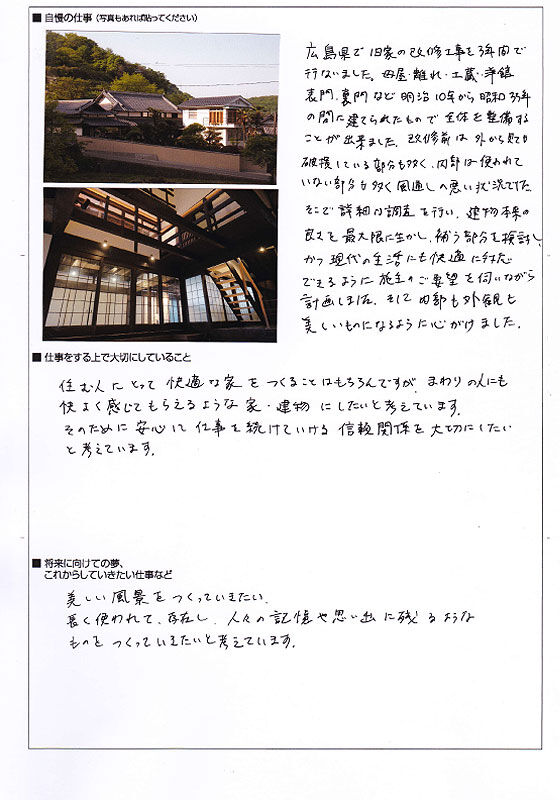 ■ 自慢の仕事（写真もあれば貼ってください）
広島県で旧家の改修工事を3年間で
行ないました。母屋・離れ・土蔵・浮鶴
表門、裏門など明治10年から昭和35年
の間に建てられたもので全体を整備する
ことが出来ました。改修前は外から見ても
破損している部分も多く、内部は使われて
いない部分も多く風通しの悪い状況でした。
そこで詳細な調査を行い、建物本来の
良さを最大限に生かし、補う部分を検討し、
かつ現代の生活にも快適に対応
できるように施主のご要望を伺いながら
計画しました。そして内部も外観も
美しいものになるように心がけました。
■ 仕事をする上で大切にしていること
住む人にとって快適な家をつくることはもちろんですが、まわりの人にも
快よく感じてもらえるような家・建物にしたいと考えています。
そのために安心して仕事を続けていける信頼関係を大切にしたい
と考えています。
■ 将来に向けての夢、
これからしていきたい仕事など
美しい風景をつくっていきたい。
長く使われて、存在し、人々の記憶や思い出に残るような
ものをつくっていきたいと考えています。